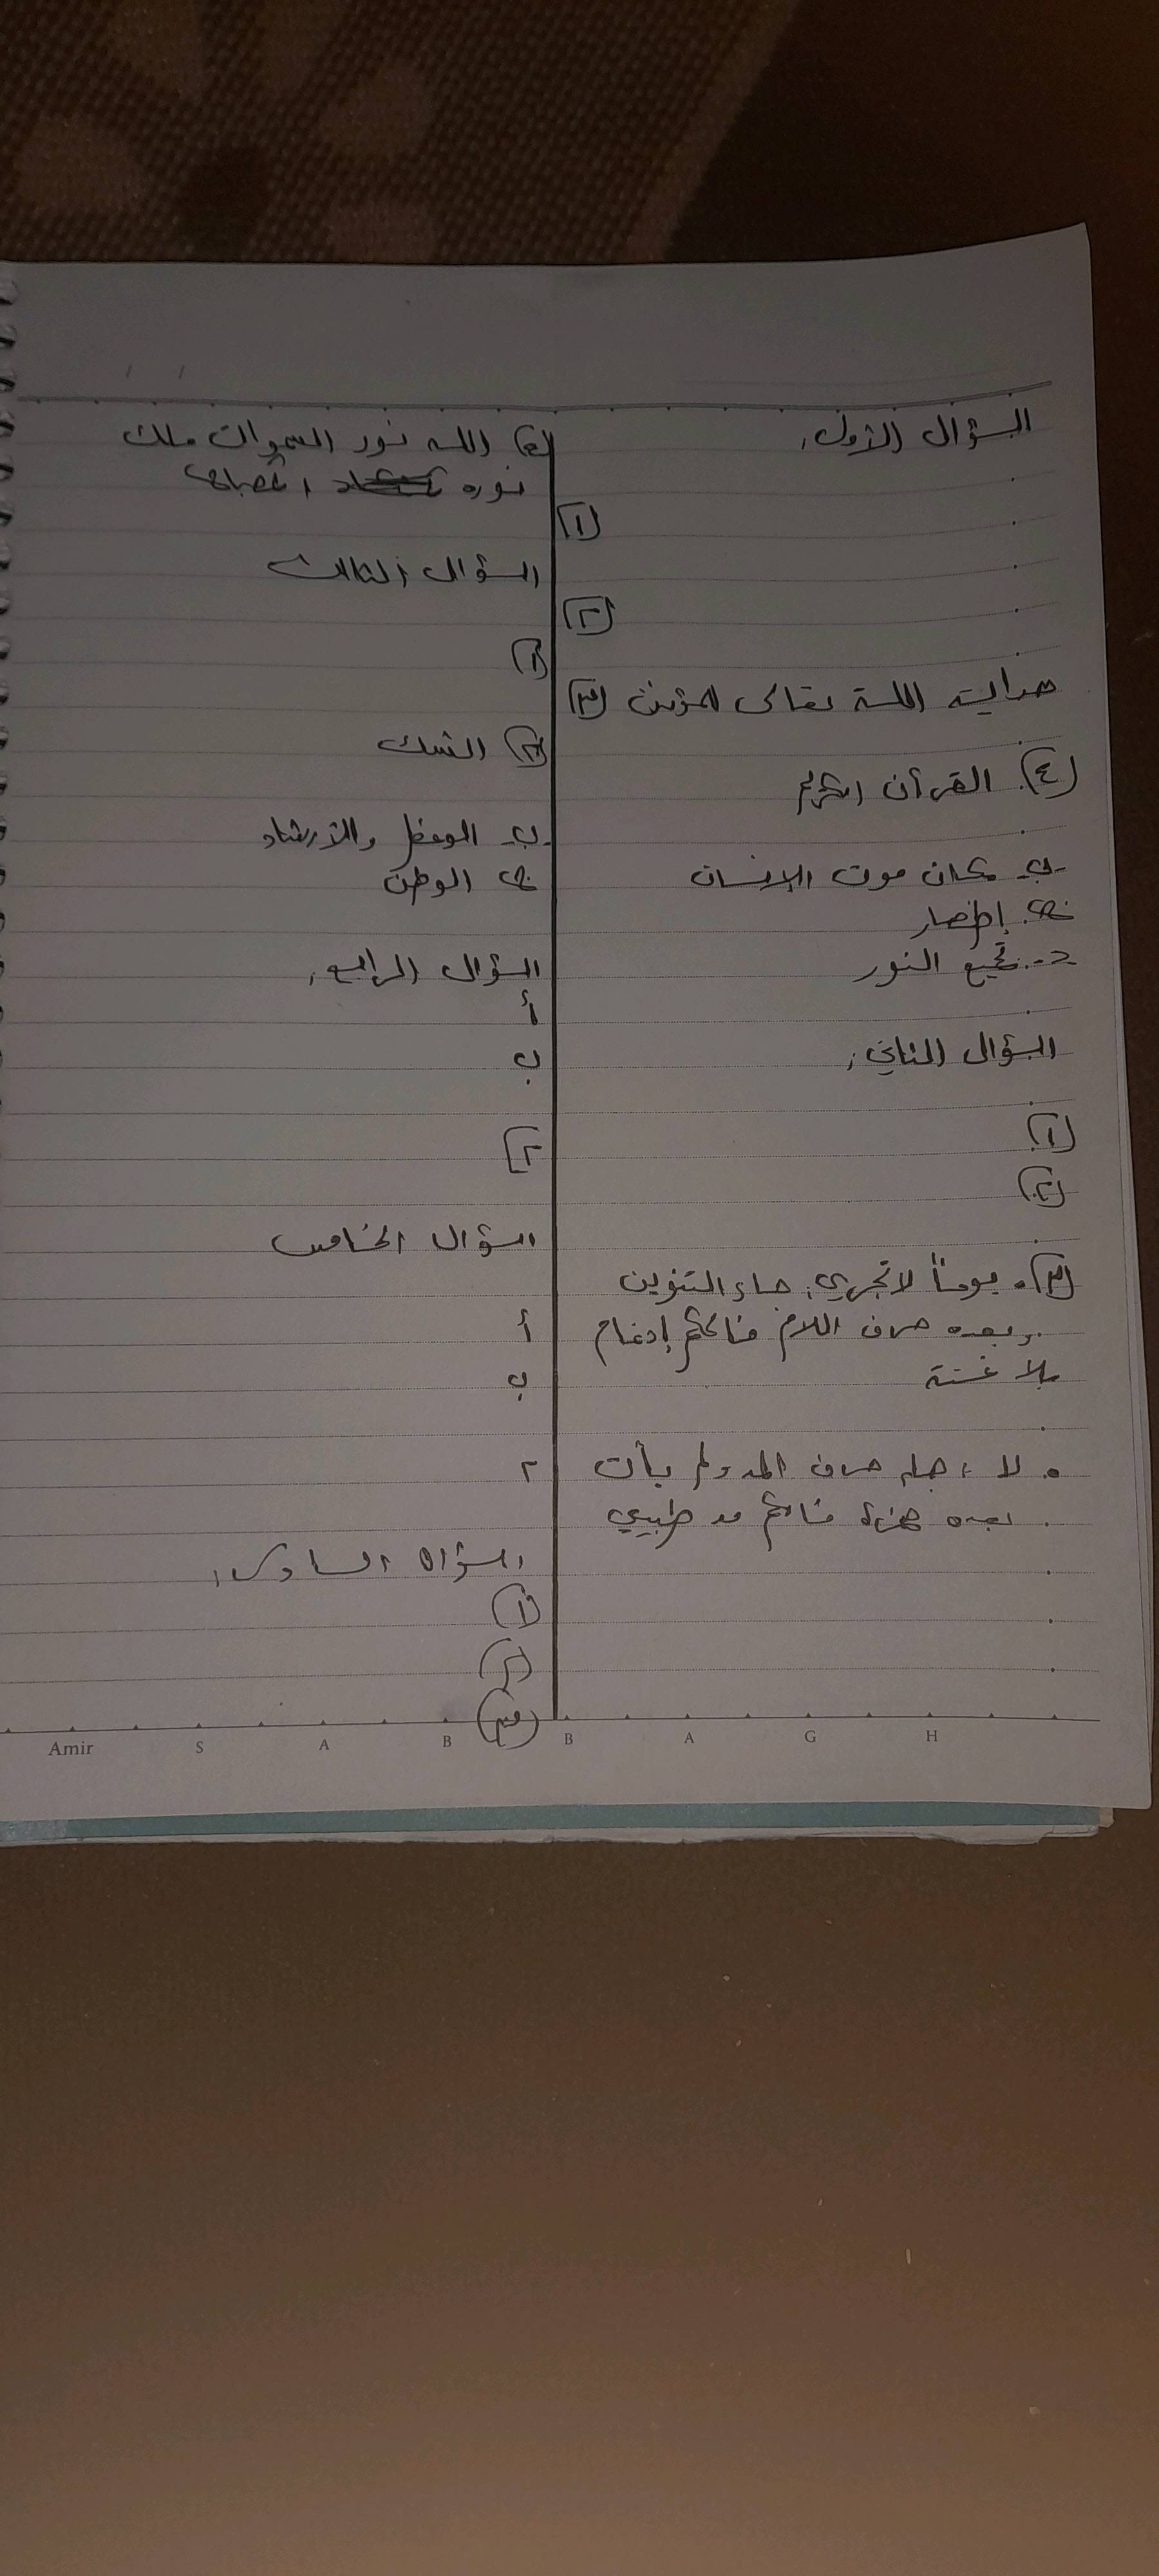 السؤال الأول:
(١)
(٢)
(٣) هداية الله تعالى للمؤمنين
(٤) القرآن الكريم
ب- مكان موت الإنسان
ج- إظهار
د- تجمع النور
السؤال الثاني:
(١)
(٢)
(٣) يوماً لا تجزي: جاء التنوين
وبعده حرف اللام فالحكم إدغام
بلا غنة
لا: جاء حرف المد ولم يأت
بعده همزة فالحكم مد طبيعي
الله نور السموات
نوره
السؤال الثالث
(١)
(٢)
ب- الوعظ والإرشاد
ج- الوطن
السؤال الرابع:
أ
ب
٢
السؤال الخامس
أ
ب
٢
السؤال السادس:
(١)
(٢)
(٣)
Amir S A B B A G H